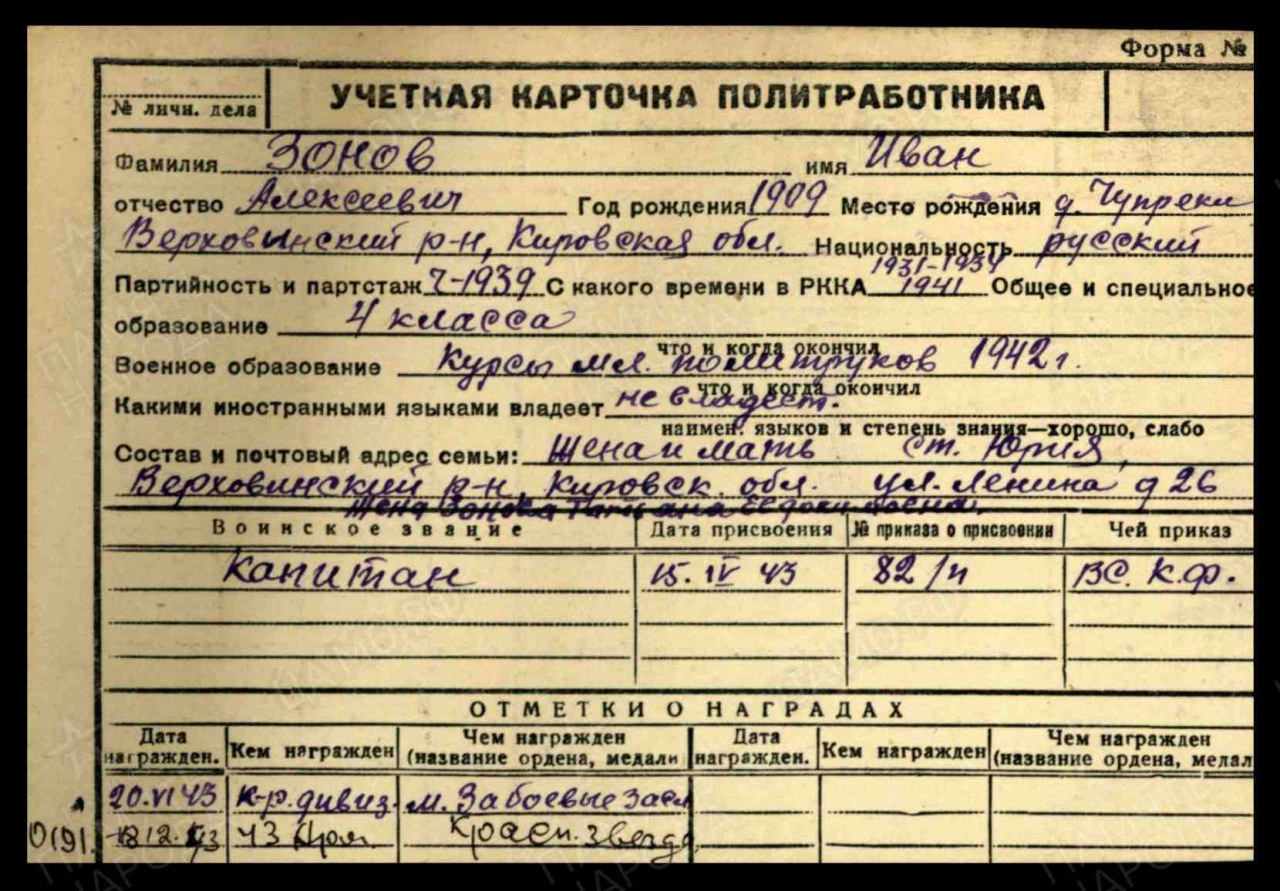 Форма №
УЧЕТНАЯ КАРТОЧКА ПОЛИТРАБОТНИКА
№ личн. дела
Фамилия Зонов имя Иван
отчество Алексеевич Год рождения 1909 Место рождения д. Чупреки
Верховинский р-н, Кировская обл. Национальность русский
1931-1934
Партийность и партстаж 1939 С какого времени в РККА 1941 Общее и специальное
образование 4 класса
что и когда окончил
Военное образование Курсы мл. политруков 1942 г.
что и когда окончил
Какими иностранными языками владеет не владеет.
наимен. языков и степень знания—хорошо, слабо
Состав и почтовый адрес семьи: Жена и мать ст. Юрия,
Верховинский р-н, Кировск. обл. ул. Ленина д 26
Жена Зонова Татьяна
Воинское звание Дата присвоения № приказа о присвоении Чей приказ
Капитан 15. IV 43 82/н ВС. К.Ф.
ОТМЕТКИ О НАГРАДАХ
Дата награжден. Кем награжден Чем награжден (название ордена, медали Дата награжден. Кем награжден Чем награжден (название ордена, медал
20.VI 43 к-р. дивиз. м. За боевые засл
0191. 18 12. 43 43 Арм. Красн. звезда